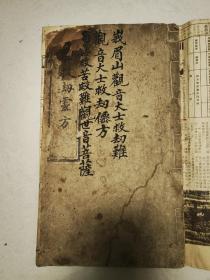 峩眉山觀音大士救劫難
觀音大士救劫僊方
苦救難觀世音菩薩
劫靈方